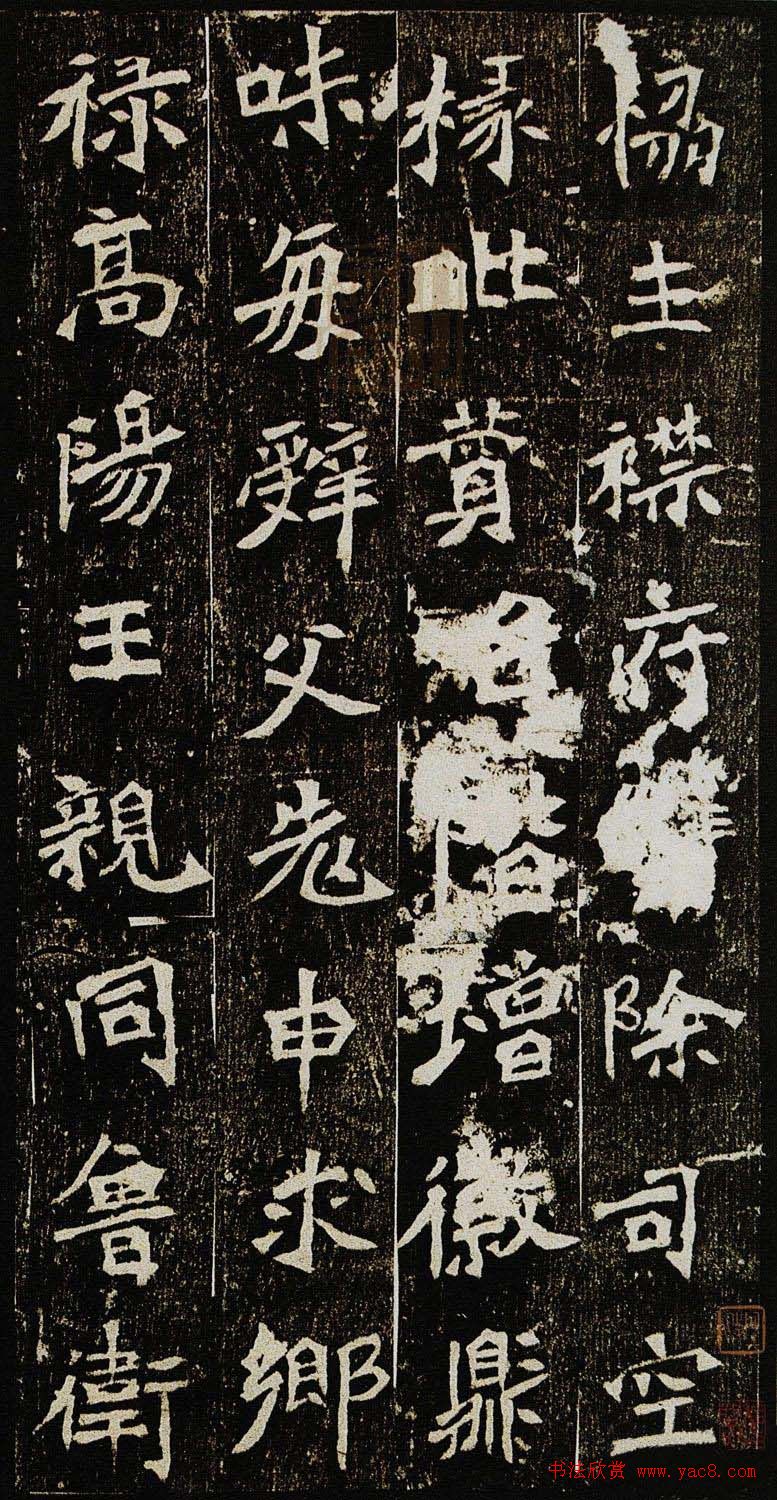 協主襟府除司空
掾毗贊台階增徽鼎
味每辤父先申求鄉
祿高陽王親同魯衛
书法欣赏 www.yac8.com